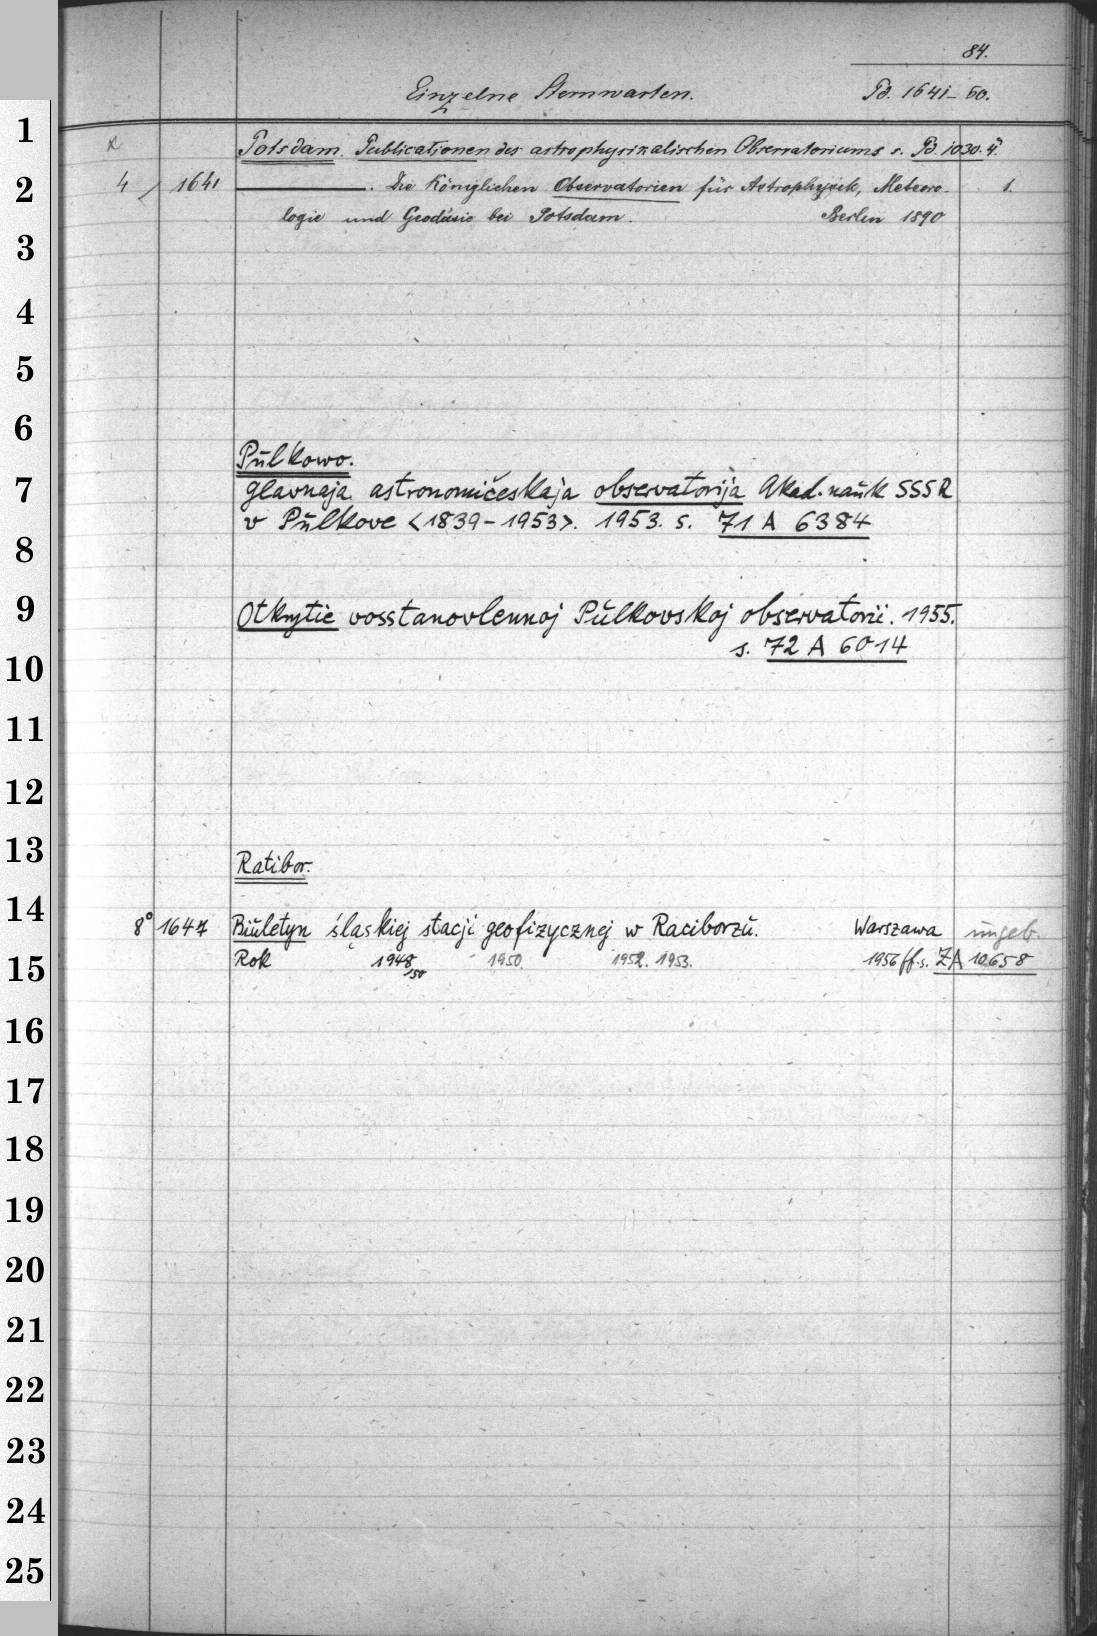 84.
Einzelne Sternwarten. Pd. 1641-50.
1
Potsdam. Publicationen des astrophysikalischen Observatoriums s. Pd. 1030. 4°.
2
4 1641 ———. Die Königlichen Observatorien für Astrophysik, Meteoro- 1.
logie und Geodäsie bei Potsdam. Berlin 1890
3
4
5
6
Pŭlkowo.
7
Glavnaja astronomičeskaja observatorija Akad. naŭk SSSR
v Pŭlkove <1839-1953>. 1953. s. 71 A 6384
8
9
Otkrytie vosstanovlennoj Pŭlkovskoj observatorii. 1955.
s. 72 A 6014
10
11
12
13
Ratibor.
14
8° 1647 Biŭletyn śląskiej stacji geofizycznej w Raciborzŭ. Warszawa ŭngeb.
15
Rok 1948/50 1950. 1952. 1953. 1956 ff. s. ZA 10658
16
17
18
19
20
21
22
23
24
25